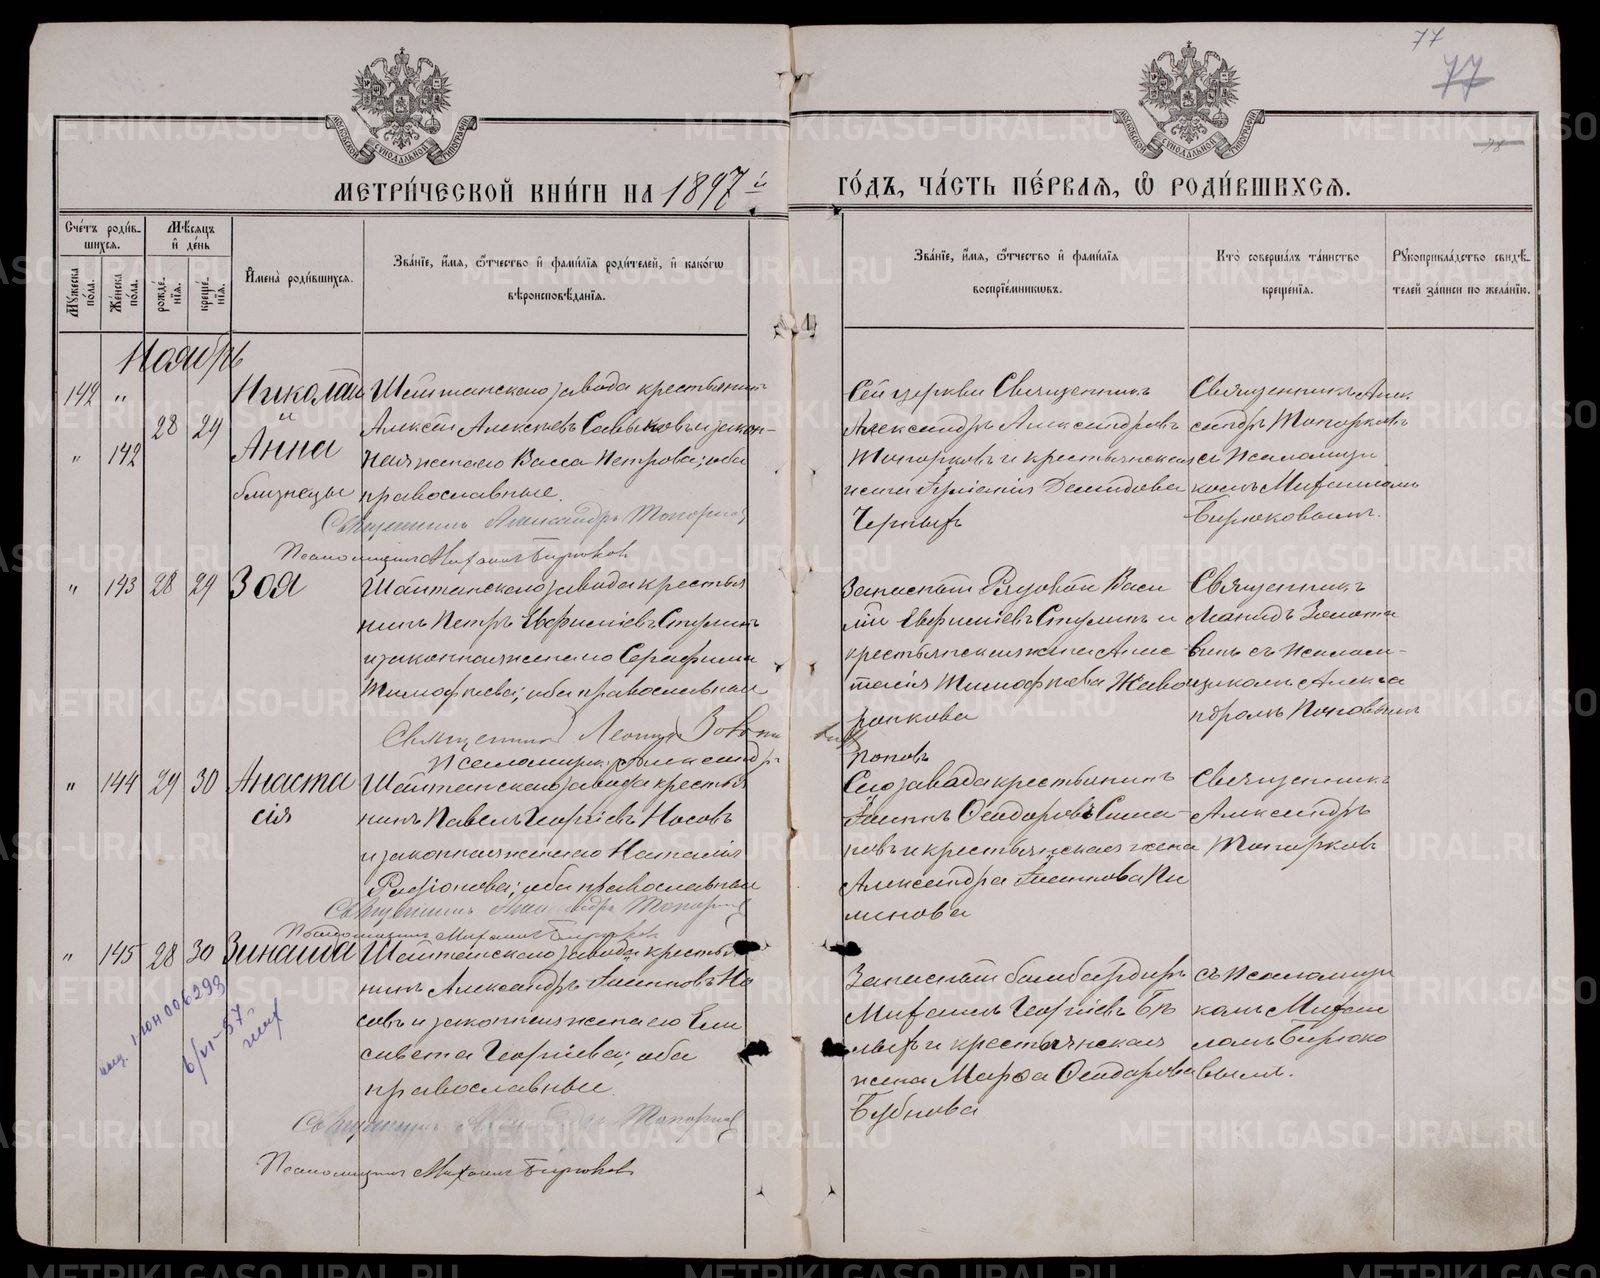 77
77
78
МОСКОВСКОЙ СУНОДАЛЬНОЙ ТИПОГРАФІИ
МОСКОВСКОЙ СУНОДАЛЬНОЙ ТИПОГРАФІИ
МЕТРИ́ЧЕСКОЙ КНИ́ГИ НА 1897 й
ГО́ДЪ, ЧА́СТЬ ПЕ́РВАѦ, Ѡ҆ РОДИ́ВШИХСѦ.
Сче́тъ роди́в-
шихсѧ.
Мѣ́сѧцъ
и҆ де́нь
Мꙋ́жеска
по́ла.
Же́нска
по́ла.
рожде́-
нїѧ.
креще́-
нїѧ.
И҆мена̀ роди́вшихсѧ.
Зва́нїе, и҆́мѧ, ѻ҆́тчество и҆ фами́лїѧ роди́телей, и҆ како́гѡ
вѣроисповѣ́данїѧ.
Зва́нїе, и҆́мѧ, ѻ҆́тчество и҆ фами́лїѧ
воспрїе́мникѡвъ.
Кто̀ соверша́лъ та́инство
креще́нїѧ.
Рꙋкоприкла́дство свидѣ́-
телей за́писи по жела́нїю.
Ноябрь
142 " 28 29 Николай
и
" 142 Анна
близнецы
Шайтанскаго завода крестьянинъ
Алексѣй Алексѣевъ и закон-
ная жена его Васса Петрова; оба
православные.
Священникъ Александръ Топорков
Псаломщикъ Михаилъ Бирюковъ
Сей церкви Священникъ
Александръ Александровъ
Топорковъ и крестьянская
жена Демидова
Черныхъ
Священникъ Алек
сандръ Топорковъ
съ Псаломщи
комъ Михаиломъ
Бирюковымъ.
" 143 28 29 Зоя
Шайтанскаго завода крестья
нинъ Петръ Евфиміевъ Ступинъ
и законная жена его Серафима
Тимофѣева; оба православные
Священникъ Леонидъ
Псаломщикъ Александръ
Поповъ
Запасный Рядовой Васи
лій Евфиміевъ Ступинъ и
крестьянская жена Анас
тасія Тимофѣева Жаво
ронкова
Священникъ
Леонидъ
съ Псалом-
щикомъ Алекса
ндромъ Поповымъ
" 144 29 30 Анаста
сія
Шайтанскаго завода крестья
нинъ Павелъ Георгіевъ Носовъ
и законная жена его Наталія
Родіонова; оба православные
Священникъ Александръ Топорков
Псаломщикъ Михаилъ Бирюков
Сего завода крестьянинъ
Ѳеодоровъ Пиме-
новъ и крестьянская жена
Александра Пи
менова
Священникъ
Александръ
Топорковъ
" 145 28 30 Зинаида
Шайтанскаго завода крестья
нинъ Александръ Но
совъ и законная жена его Ели
савета Георгіева; оба
православные.
Священникъ Александръ Топорков
Псаломщикъ Михаилъ Бирюковъ
Запасный бомбардиръ
Михаилъ Георгіевъ Бѣ
лыхъ и крестьянская
жена Марѳа Ѳеодорова
Бубнова
съ Псаломщи
комъ Михаи
ломъ Бирюко
вымъ.
METRIKI.GASO-URAL.RU